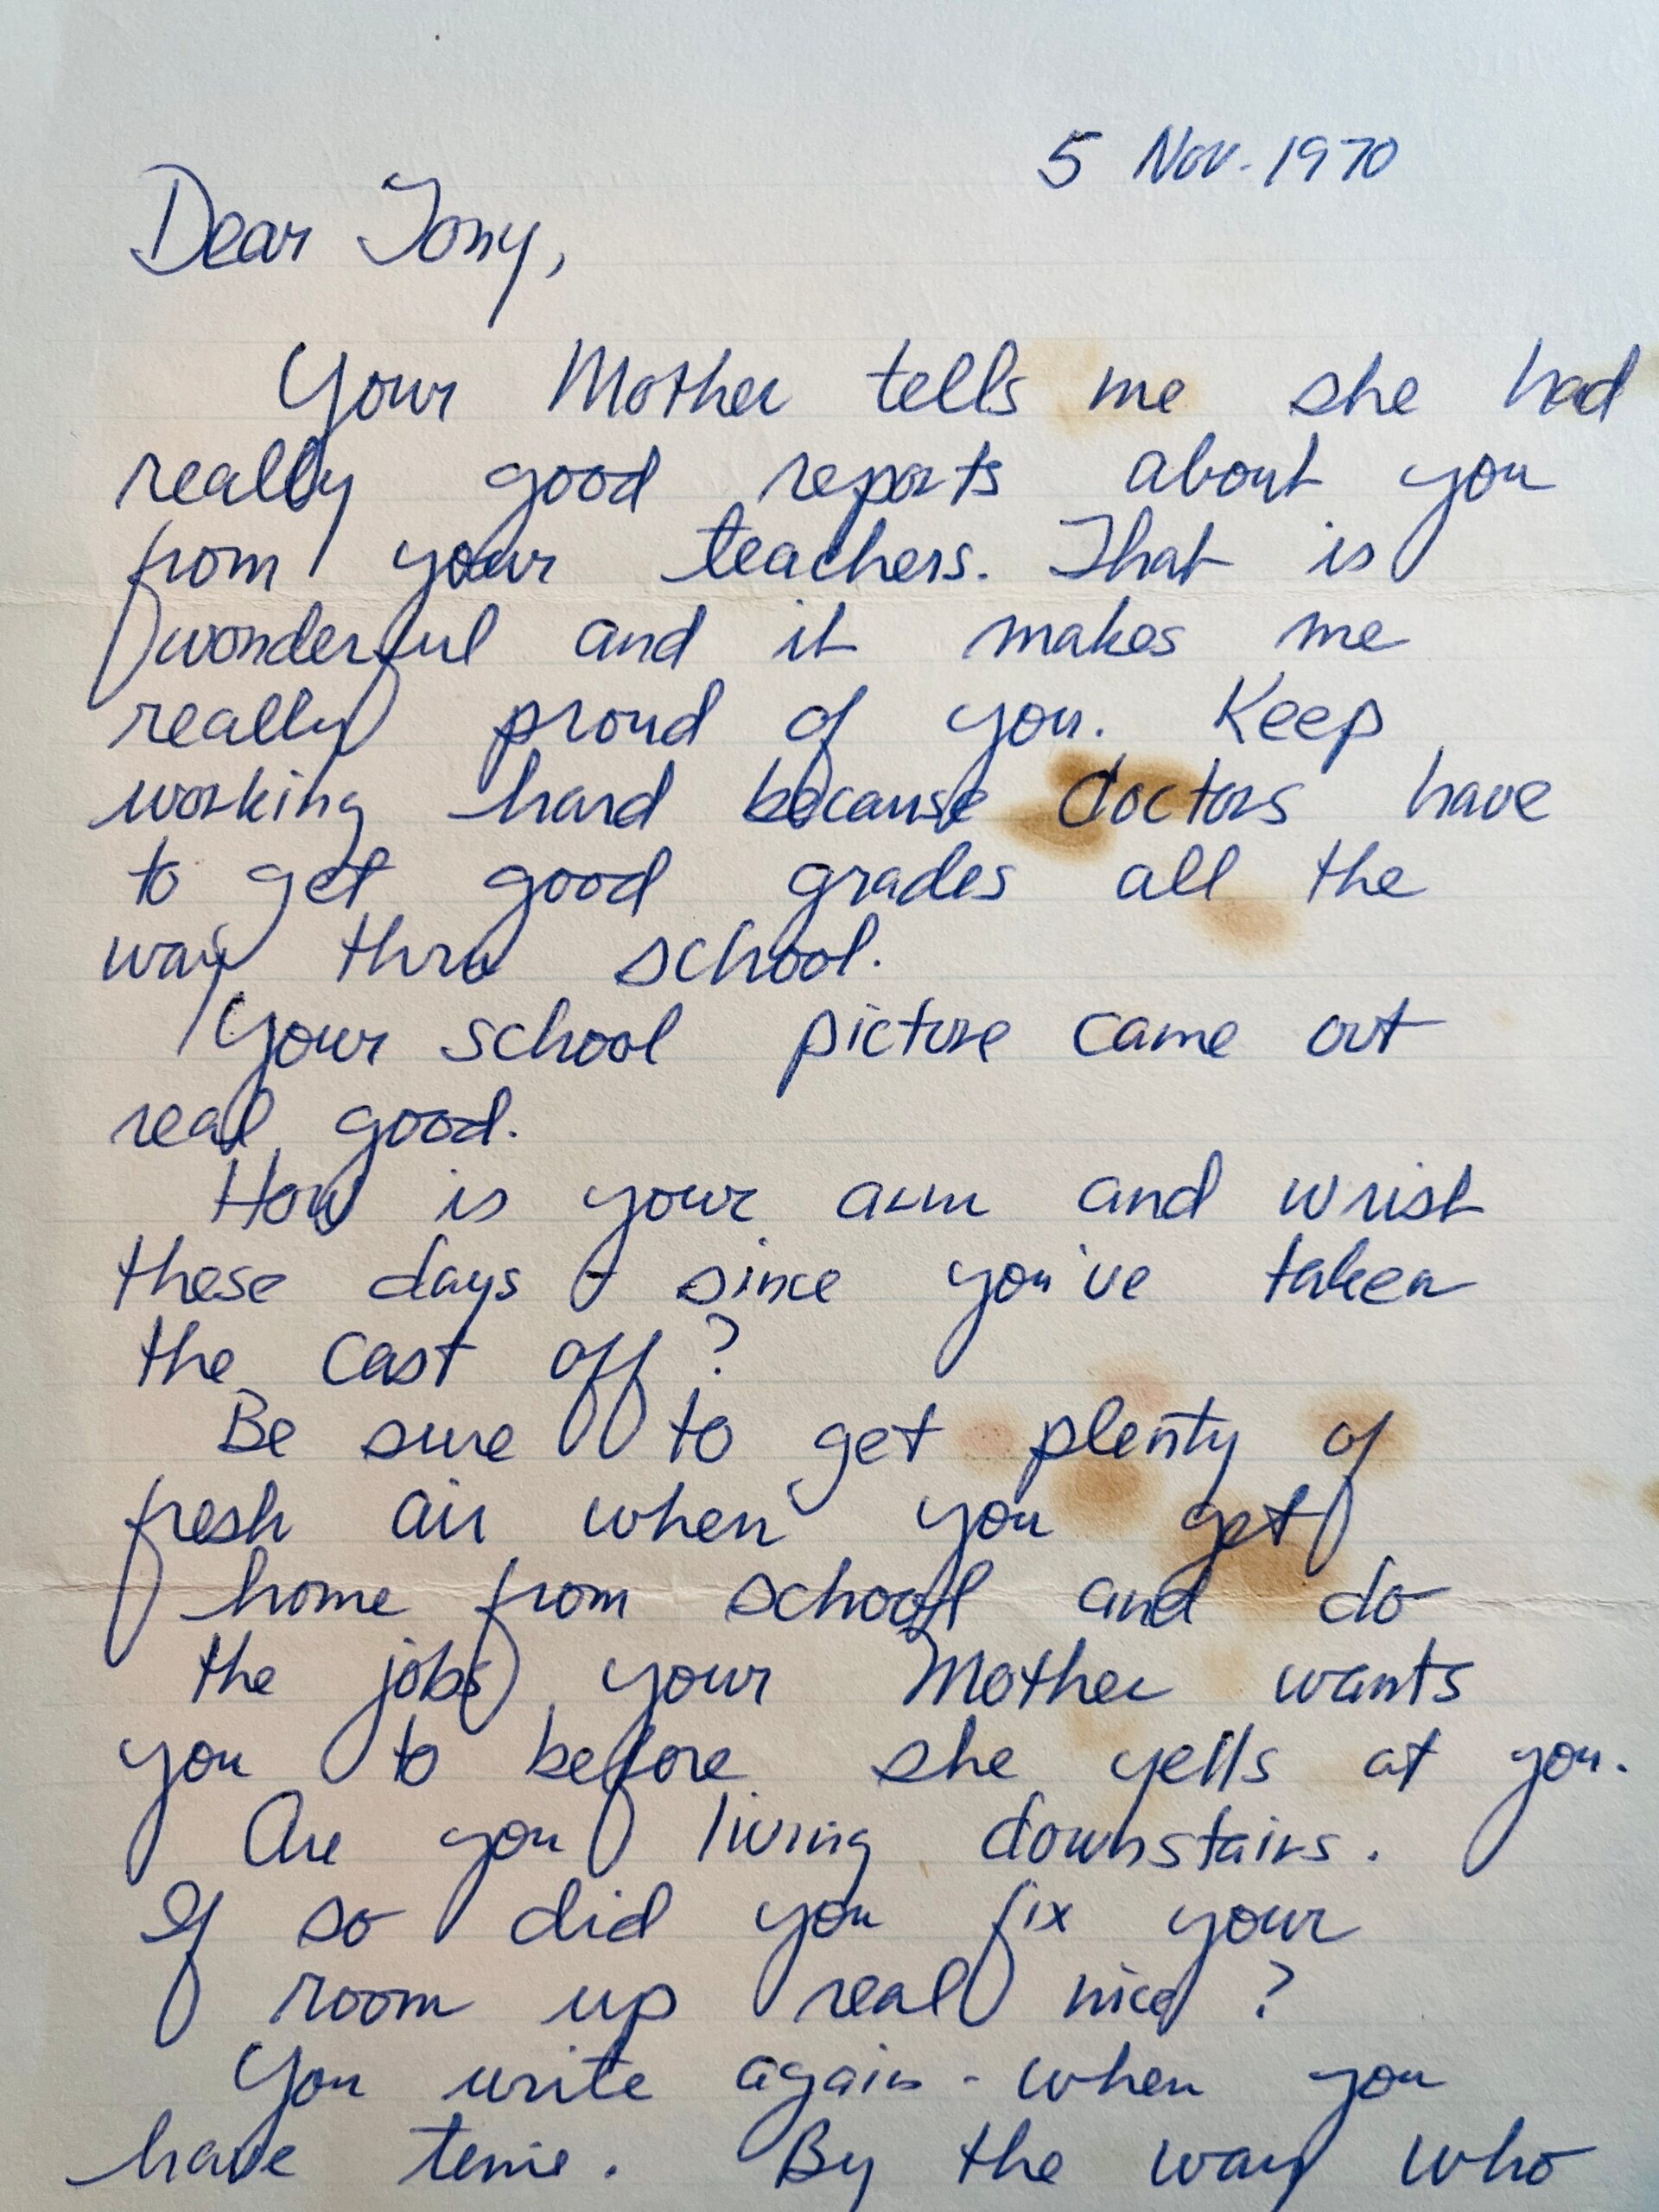 5 Nov. 1970
Dear Tony,
Your Mother tells me she had
really good reports about you
from your teachers. That is
wonderful and it makes me
really proud of you. Keep
working hard because doctors have
to get good grades all the
way thru school.
Your school picture came out
real good.
How is your arm and wrist
these days - since you've taken
the cast off?
Be sure to get plenty of
fresh air when you get
home from school and do
the jobs your Mother wants
you to before she yells at you.
Are you living downstairs.
If so did you fix your
room up real nice?
You write again - when you
have time. By the way who